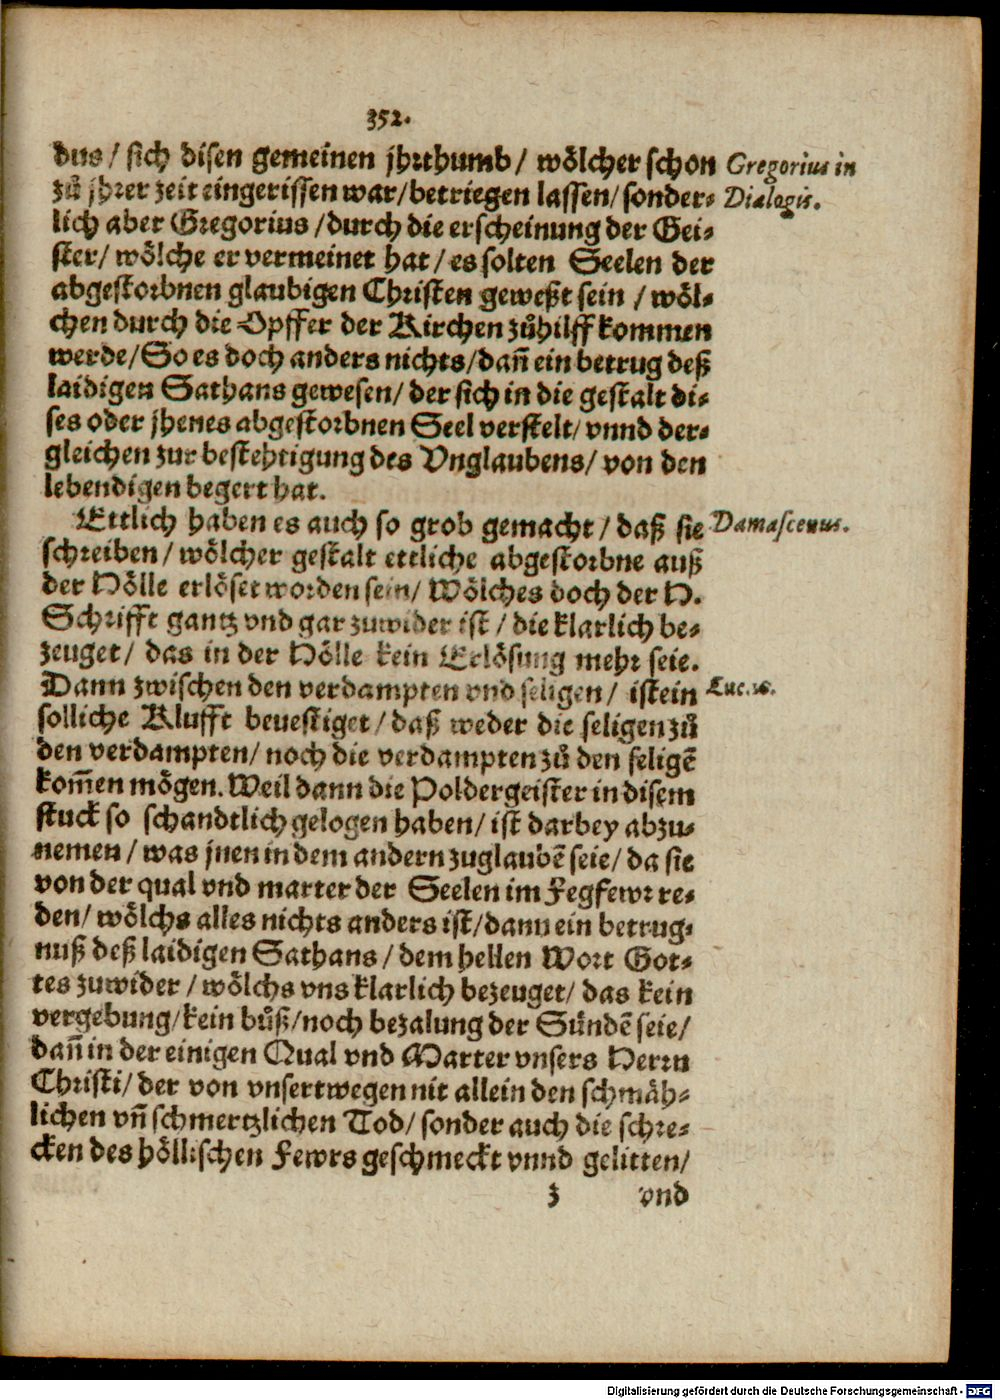 352.
dus / sich disen gemeinen jhrthumb / wölcher schon
Gregorius in
zů jhrer zeit eingerissen war / betriegen lassen / sonder⸗
Dialogis.
lich aber Gregorius / durch die erscheinung der Gei⸗
ster / wölche er vermeinet hat / es solten Seelen der
abgestorbnen glaubigen Christen geweßt sein / wöl⸗
chen durch die Opffer der Kirchen zůhilff kommen
werde / So es doch anders nichts / dañ ein betrug deß
laidigen Sathans gewesen / der sich in die gestalt di⸗
ses oder jhenes abgestorbnen Seel verstelt / vnnd der⸗
gleichen zur bestehtigung des Vnglaubens / von den
lebendigen begert hat.
Ettlich haben es auch so grob gemacht / daß sie
Damascenus.
schreiben / wölcher gestalt ettliche abgestorbne auß
der Hölle erlöset worden sein / Wölches doch der H.
Schrifft gantz vnd gar zuwider ist / die klarlich be⸗
zeuget / das in der Hölle kein Erlösung mehr seie.
Dann zwischen den verdampten vnd seligen / ist ein
Luc. 16.
solliche Klufft beuestiget / daß weder die seligen zů
den verdampten / noch die verdampten zů den seligē
kom̃en mögen. Weil dann die Poldergeister in disem
stuck so schandtlich gelogen haben / ist darbey abzu⸗
nemen / was jnen in dem andern zuglaubē seie / da sie
von der qual vnd marter der Seelen im Fegfewr re⸗
den / wölchs alles nichts anders ist / dann ein betrug⸗
nuß deß laidigen Sathans / dem hellen Wort Got⸗
tes zuwider / wölchs vns klarlich bezeuget / das kein
vergebung / kein bůß / noch bezalung der Sündē seie /
dañ in der einigen Qual vnd Marter vnsers Herrn
Christi / der von vnsertwegen nit allein den schmäh⸗
lichen vñ schmertzlichen Tod / sonder auch die schre⸗
cken des höllischen Fewrs geschmeckt vnnd gelitten /
z vnd
Digitalisierung gefördert durch die Deutsche Forschungsgemeinschaft - DFG